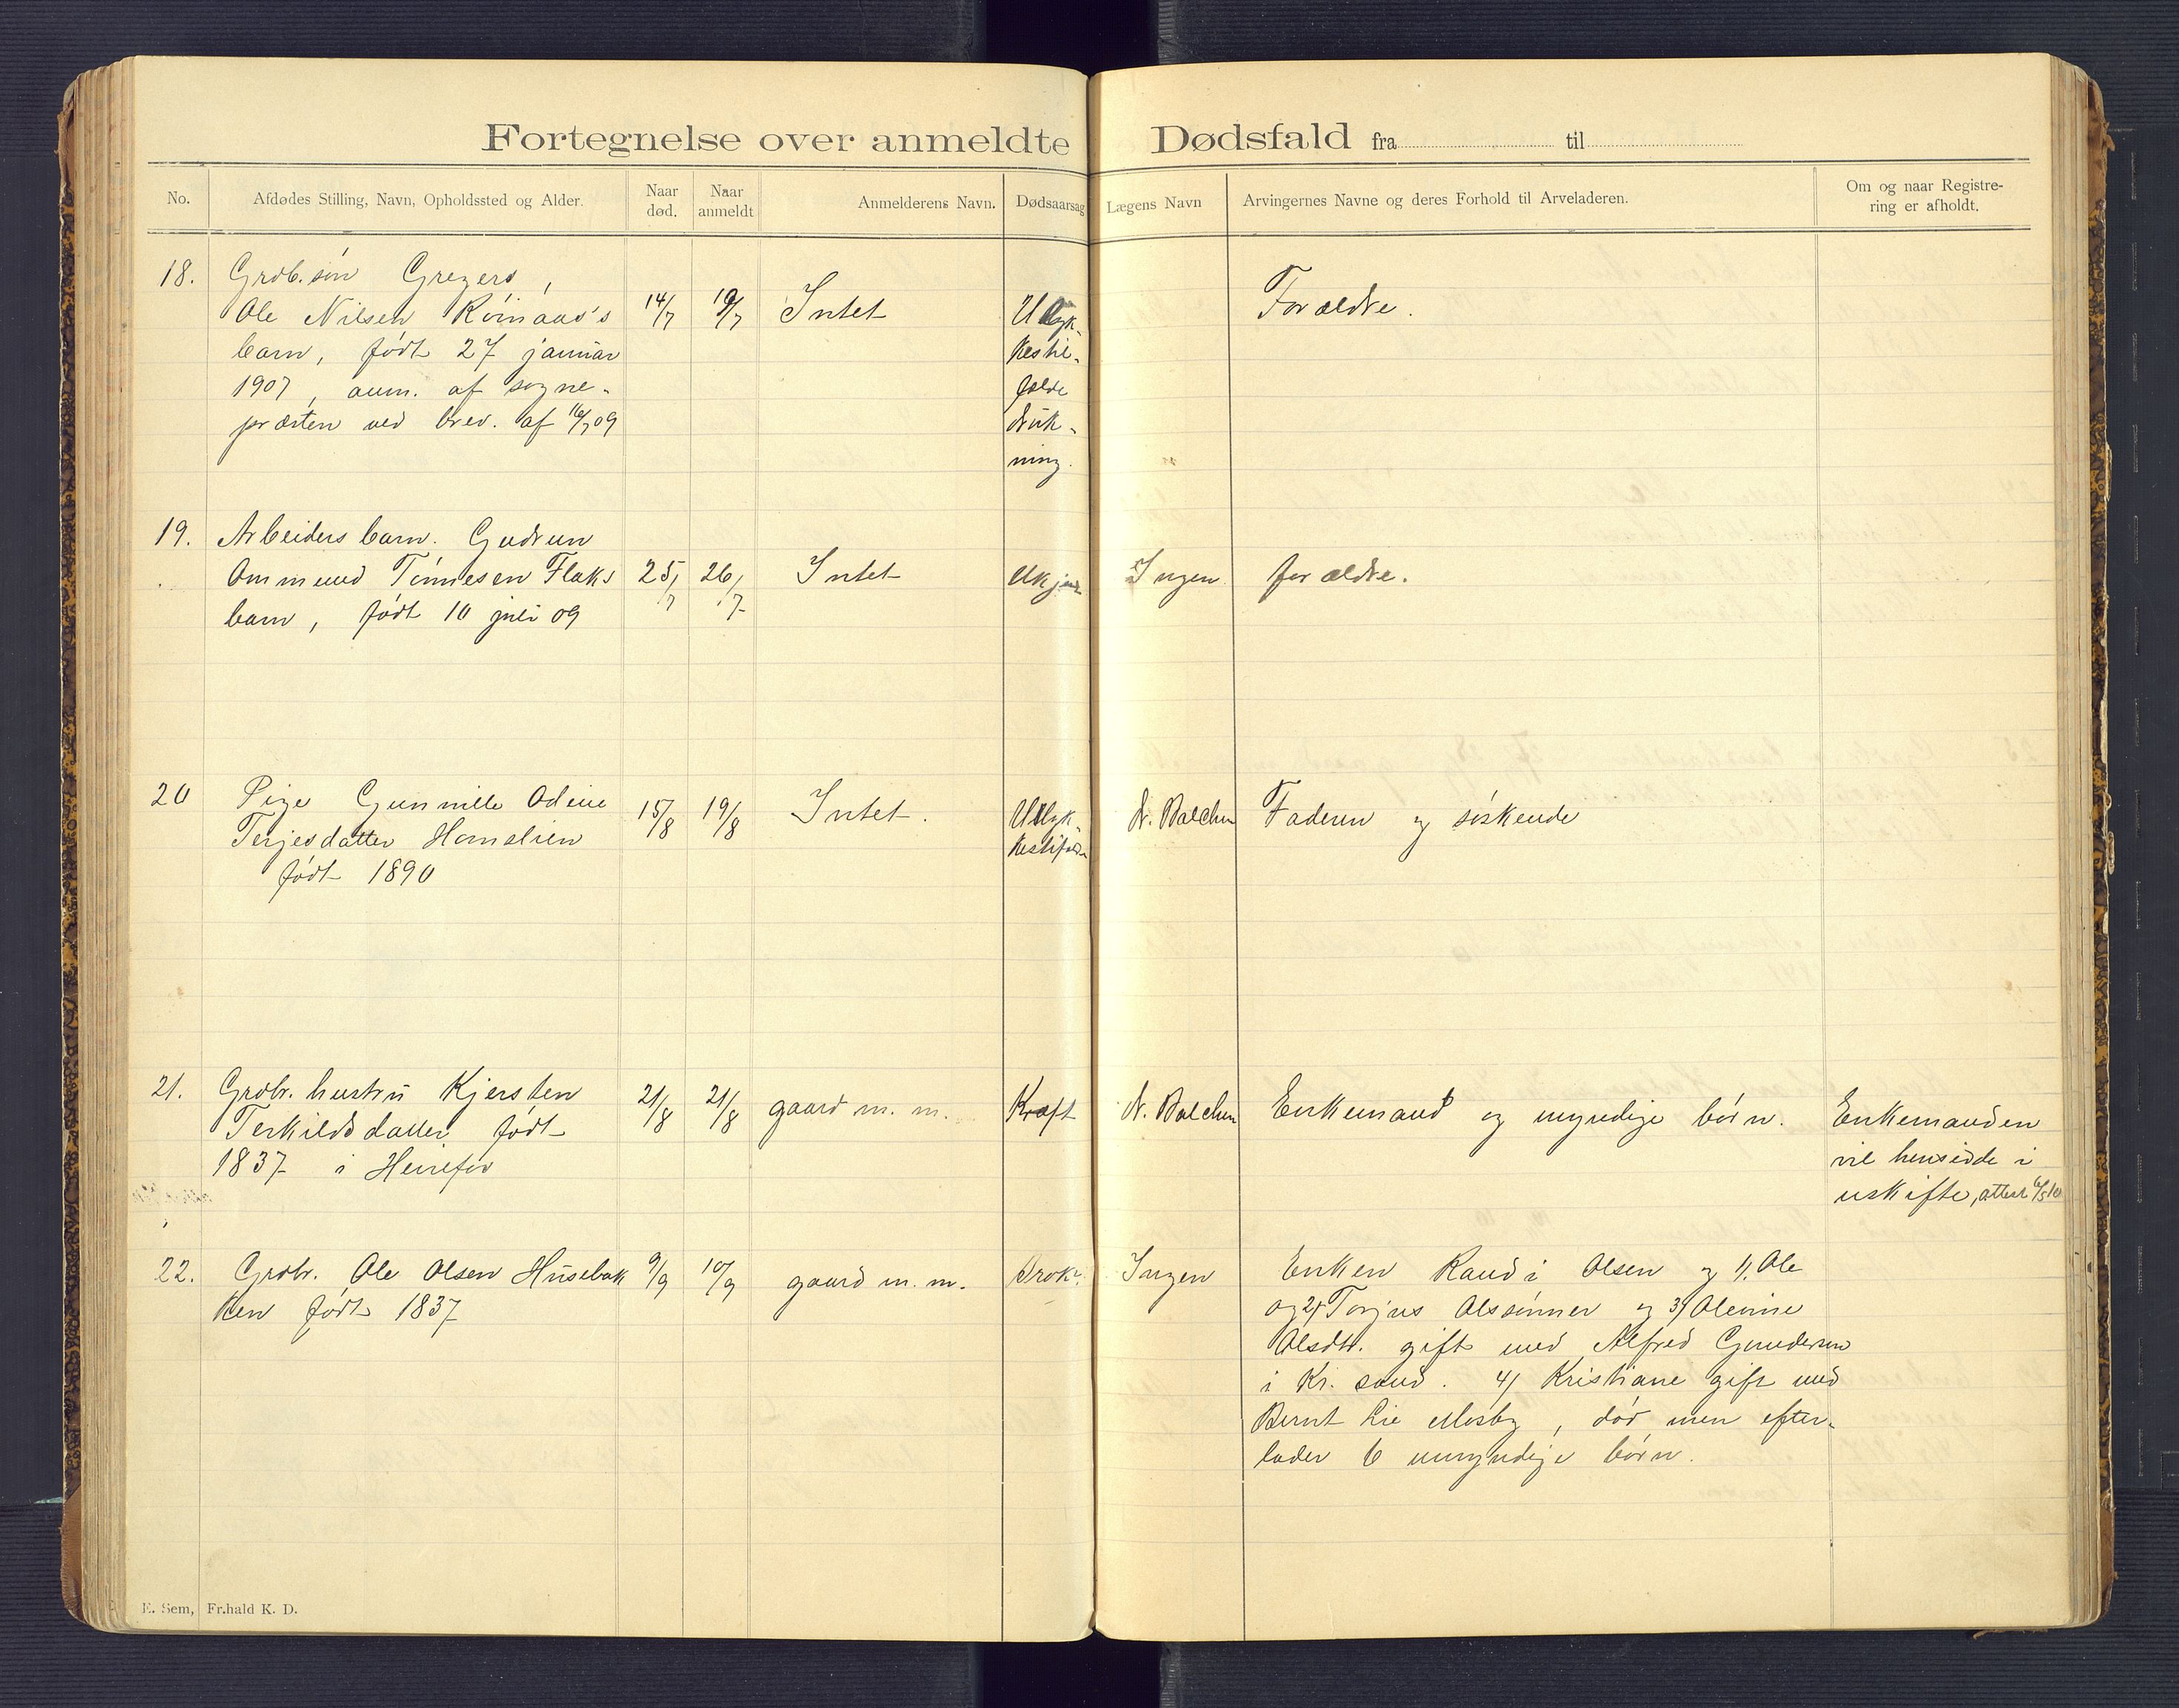 Fortegnelse over anmeldte Dødsfald fra til
No. Afdødes Stilling, Navn, Opholdssted og Alder. Naar død. Naar anmeldt Anmelderens Navn. Dødsaarsag Lægens Navn Arvingernes Navne og deres Forhold til Arveladeren. Om og naar Registrering er afholdt.
18. Grdb. søn Gregers,
Ole Nilsen Røinaas's 14/7 19/7 Intet Ulyk- Forældre.
barn, født 27 januar kestil-
1907, anm. af sogne- fælde
præsten ved brev. af 16/7 09 druk-
ning.
19. Arbeiders barn. Gudrun
Ommund Tønnesen Flaks 25/7 26/7 Intet Ukjend Ingen forældre.
barn, født 10 juli 09
20 Pige Gunnille Odine 15/8 19/8 Intet. Ulyk- d. Balchen Faderen og søskende
Terjesdatter Homslien kestilfælde
født 1890
21. Grdbr. hustru Kjersten 21/8 21/8 gaard m. m. Kræft d. Balchen Enkemand og myndige børn. Enkemanden
Terkildsdatter, født vil hensidde i
1837 i Heirefos uskifte, attest 6/5 10
22. Grdbr. Ole Olsen Husebak 9/9 10/9 gaard m. m. Brok. Ingen Enken Randi Olsen og 1, Ole
ken født 1837 og 2, Torjus Olssønner og 3, Olevine
Olsdtr. gift med Alfred Gundersen
i Kr. sand. 4, Kristiane gift med
Bernt Lie Mosby, død men efter-
lader 6 umyndige børn.
E. Sem, Fr.hald K. D.